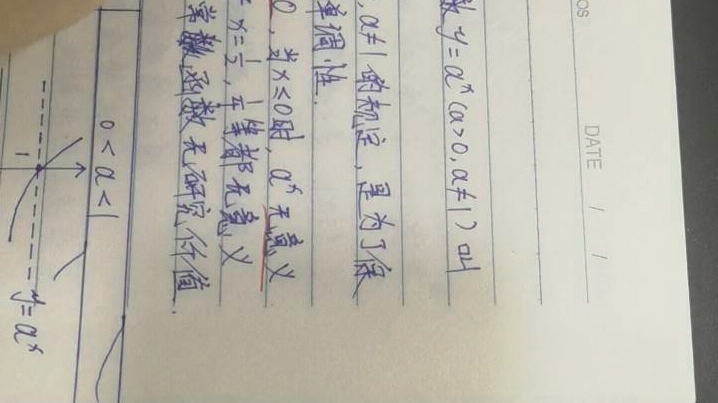 OS
DATE / /
数 y=aˣ(a>0,a≠1)叫
,a≠1的规定,是为了保
单调性.
0,当x≤0时,aˣ无意义
x=½,¼等都无意义
常数函数无研究价值.
0<a<1
1
y=aˣ